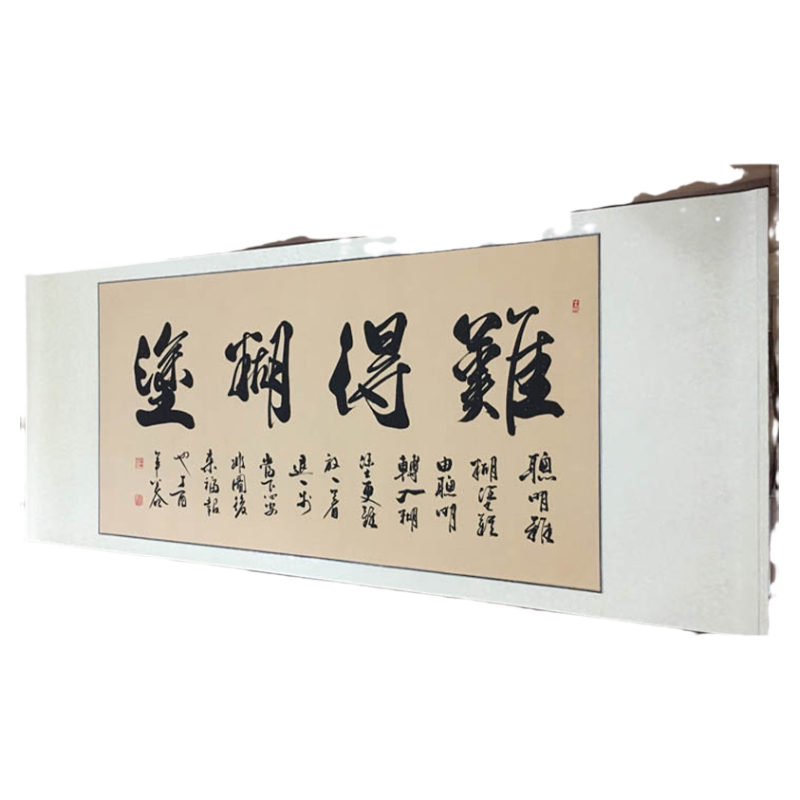 難得糊塗
聰明難
糊塗難
由聰明
轉入糊
塗更難
放一著
退一步
當下心安
非圖後
來福報
也丁酉
年